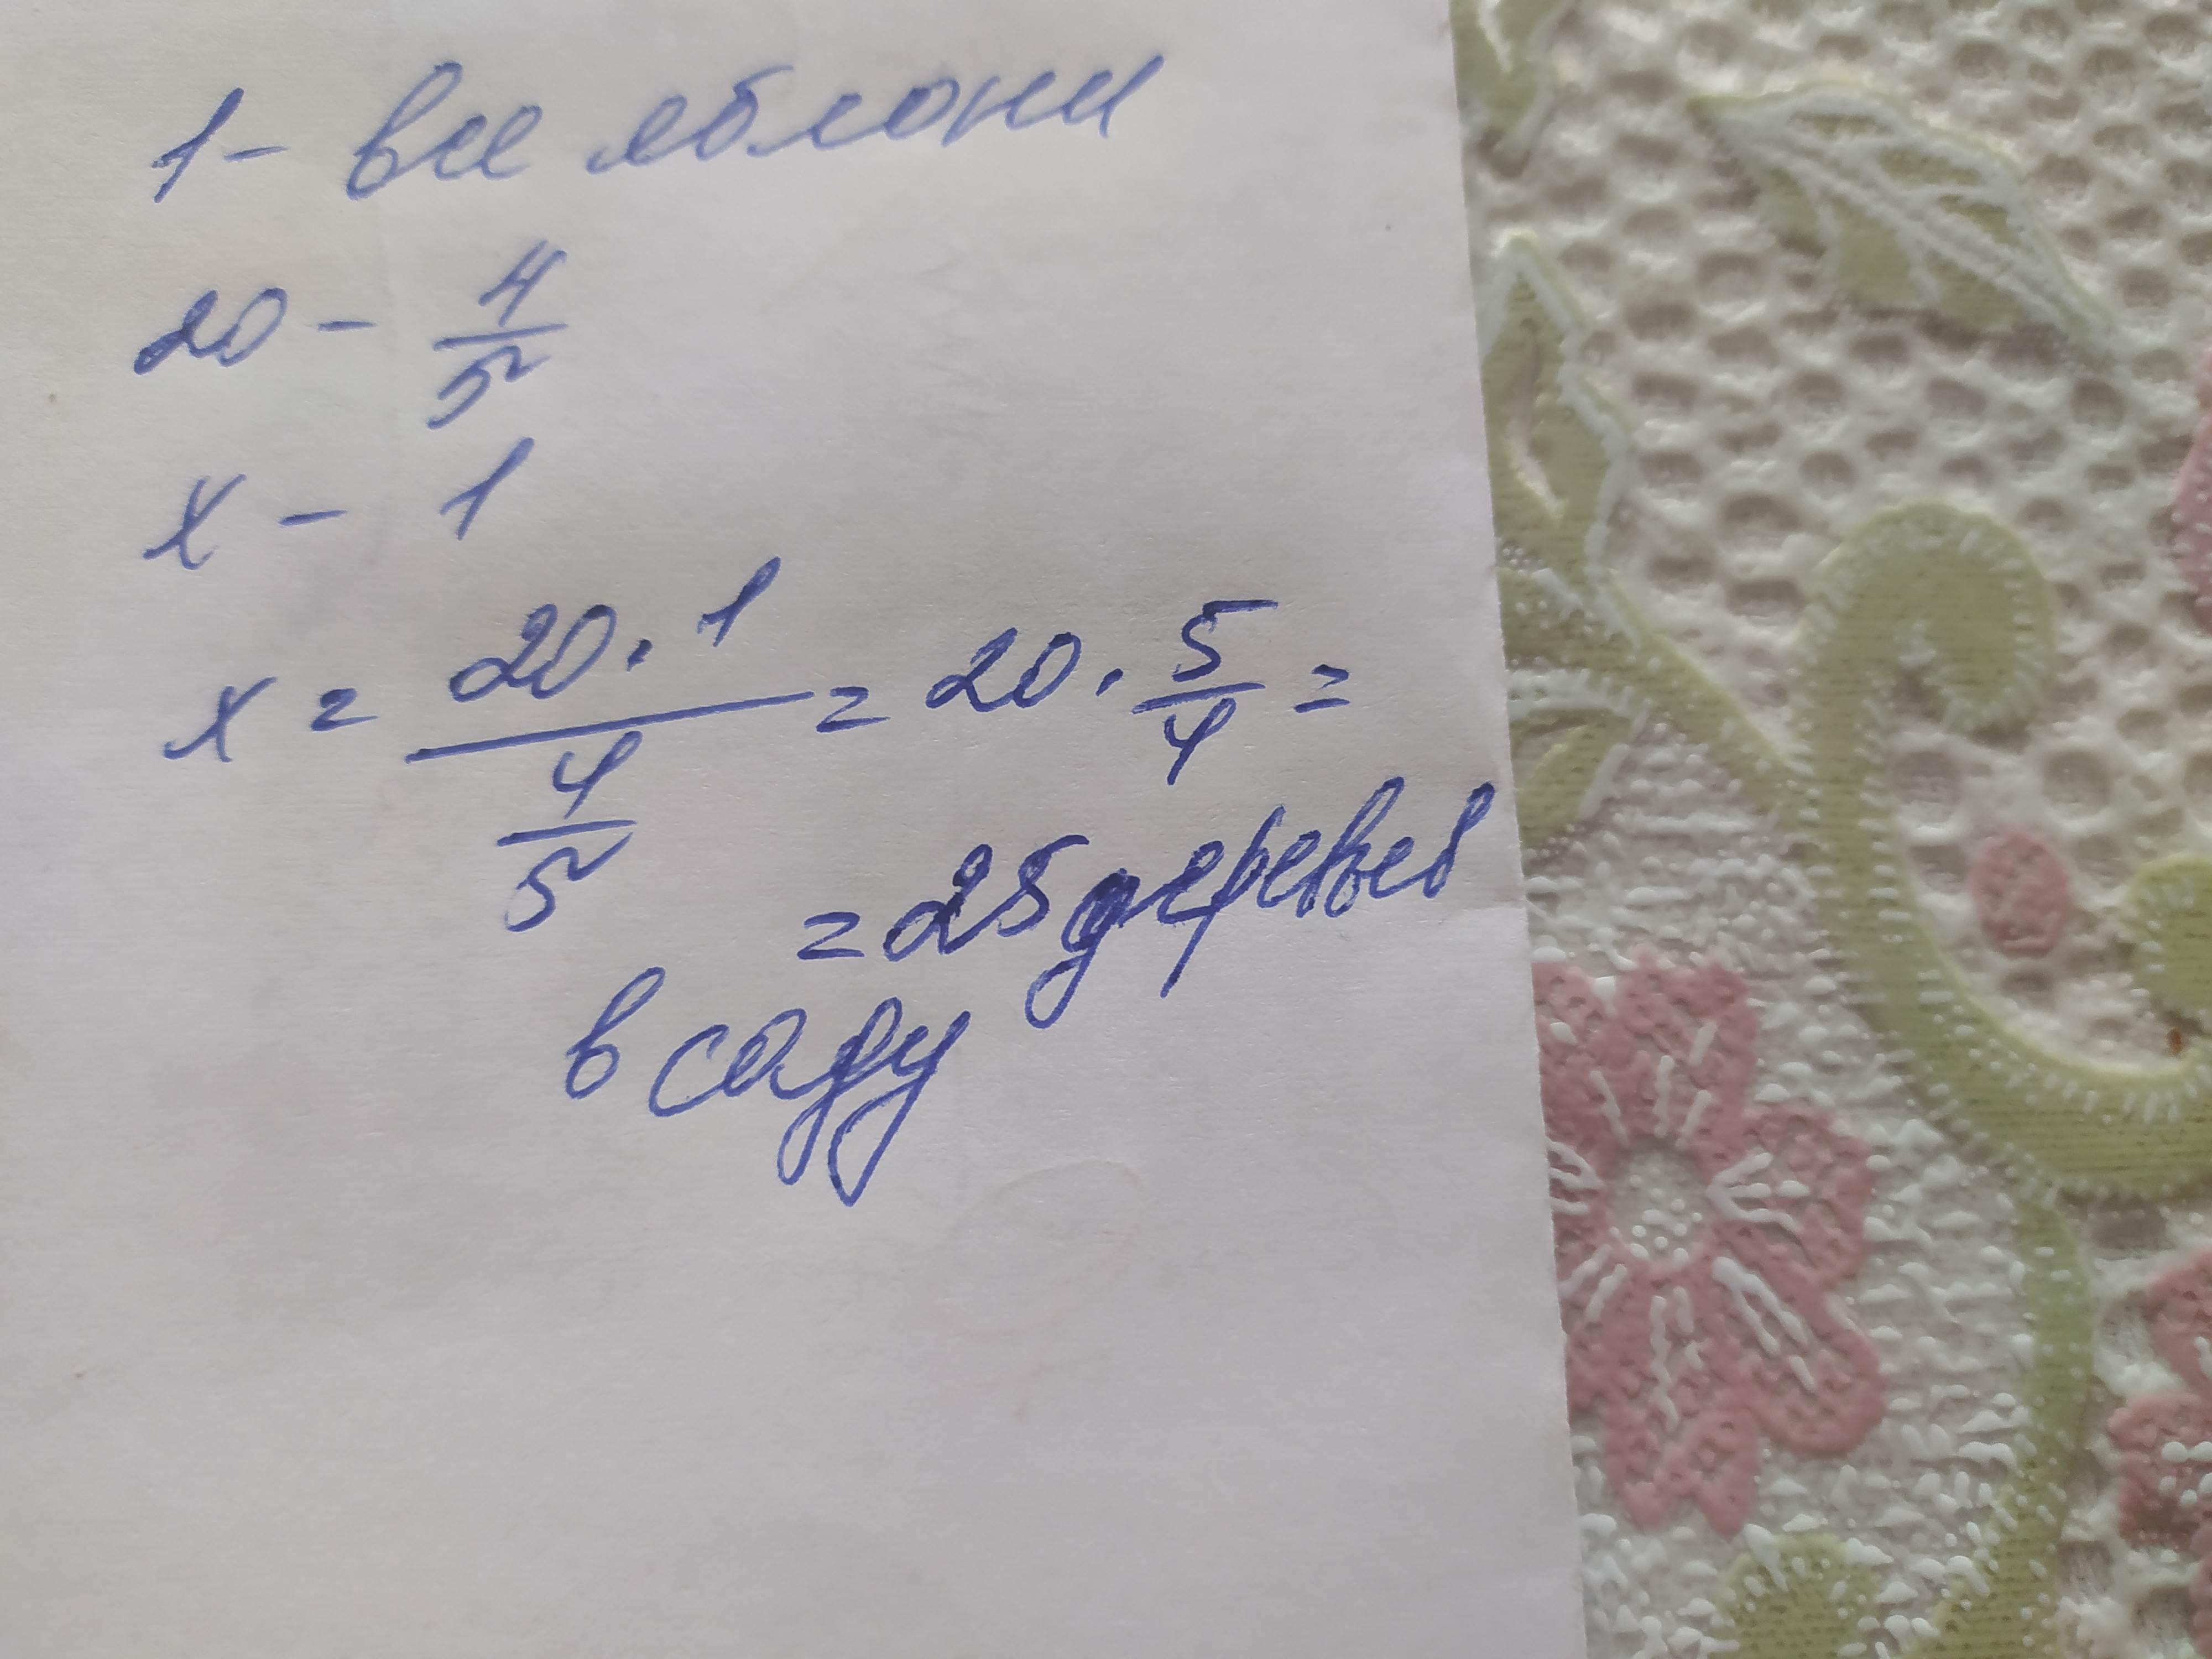 1 - все яблони
20 - 4/5
x - 1
x = (20 · 1)/(4/5) = 20 · 5/4 =
= 25 деревьев
в саду